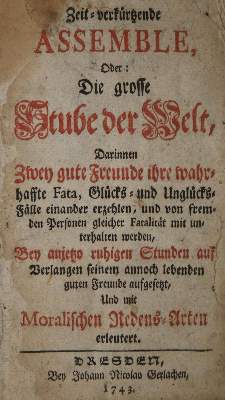 Zeit-verkürtzende
ASSEMBLE,
Oder:
Die grosse
Stube der Welt,
Darinnen
Zwey gute Freunde ihre wahr-
haffte Fata, Glücks- und Unglücks-
Fälle einander erzehlen, und von frem-
den Personen gleicher Fatalität mit un-
terhalten werden,
Bey anjetzo ruhigen Stunden auf
Verlangen seinem annoch lebenden
guten Freunde aufgesetzt,
Und mit
Moralischen Redens-Arten
erleutert.
DRESDEN,
Bey Johann Nicolau Gerlachen,
1743.